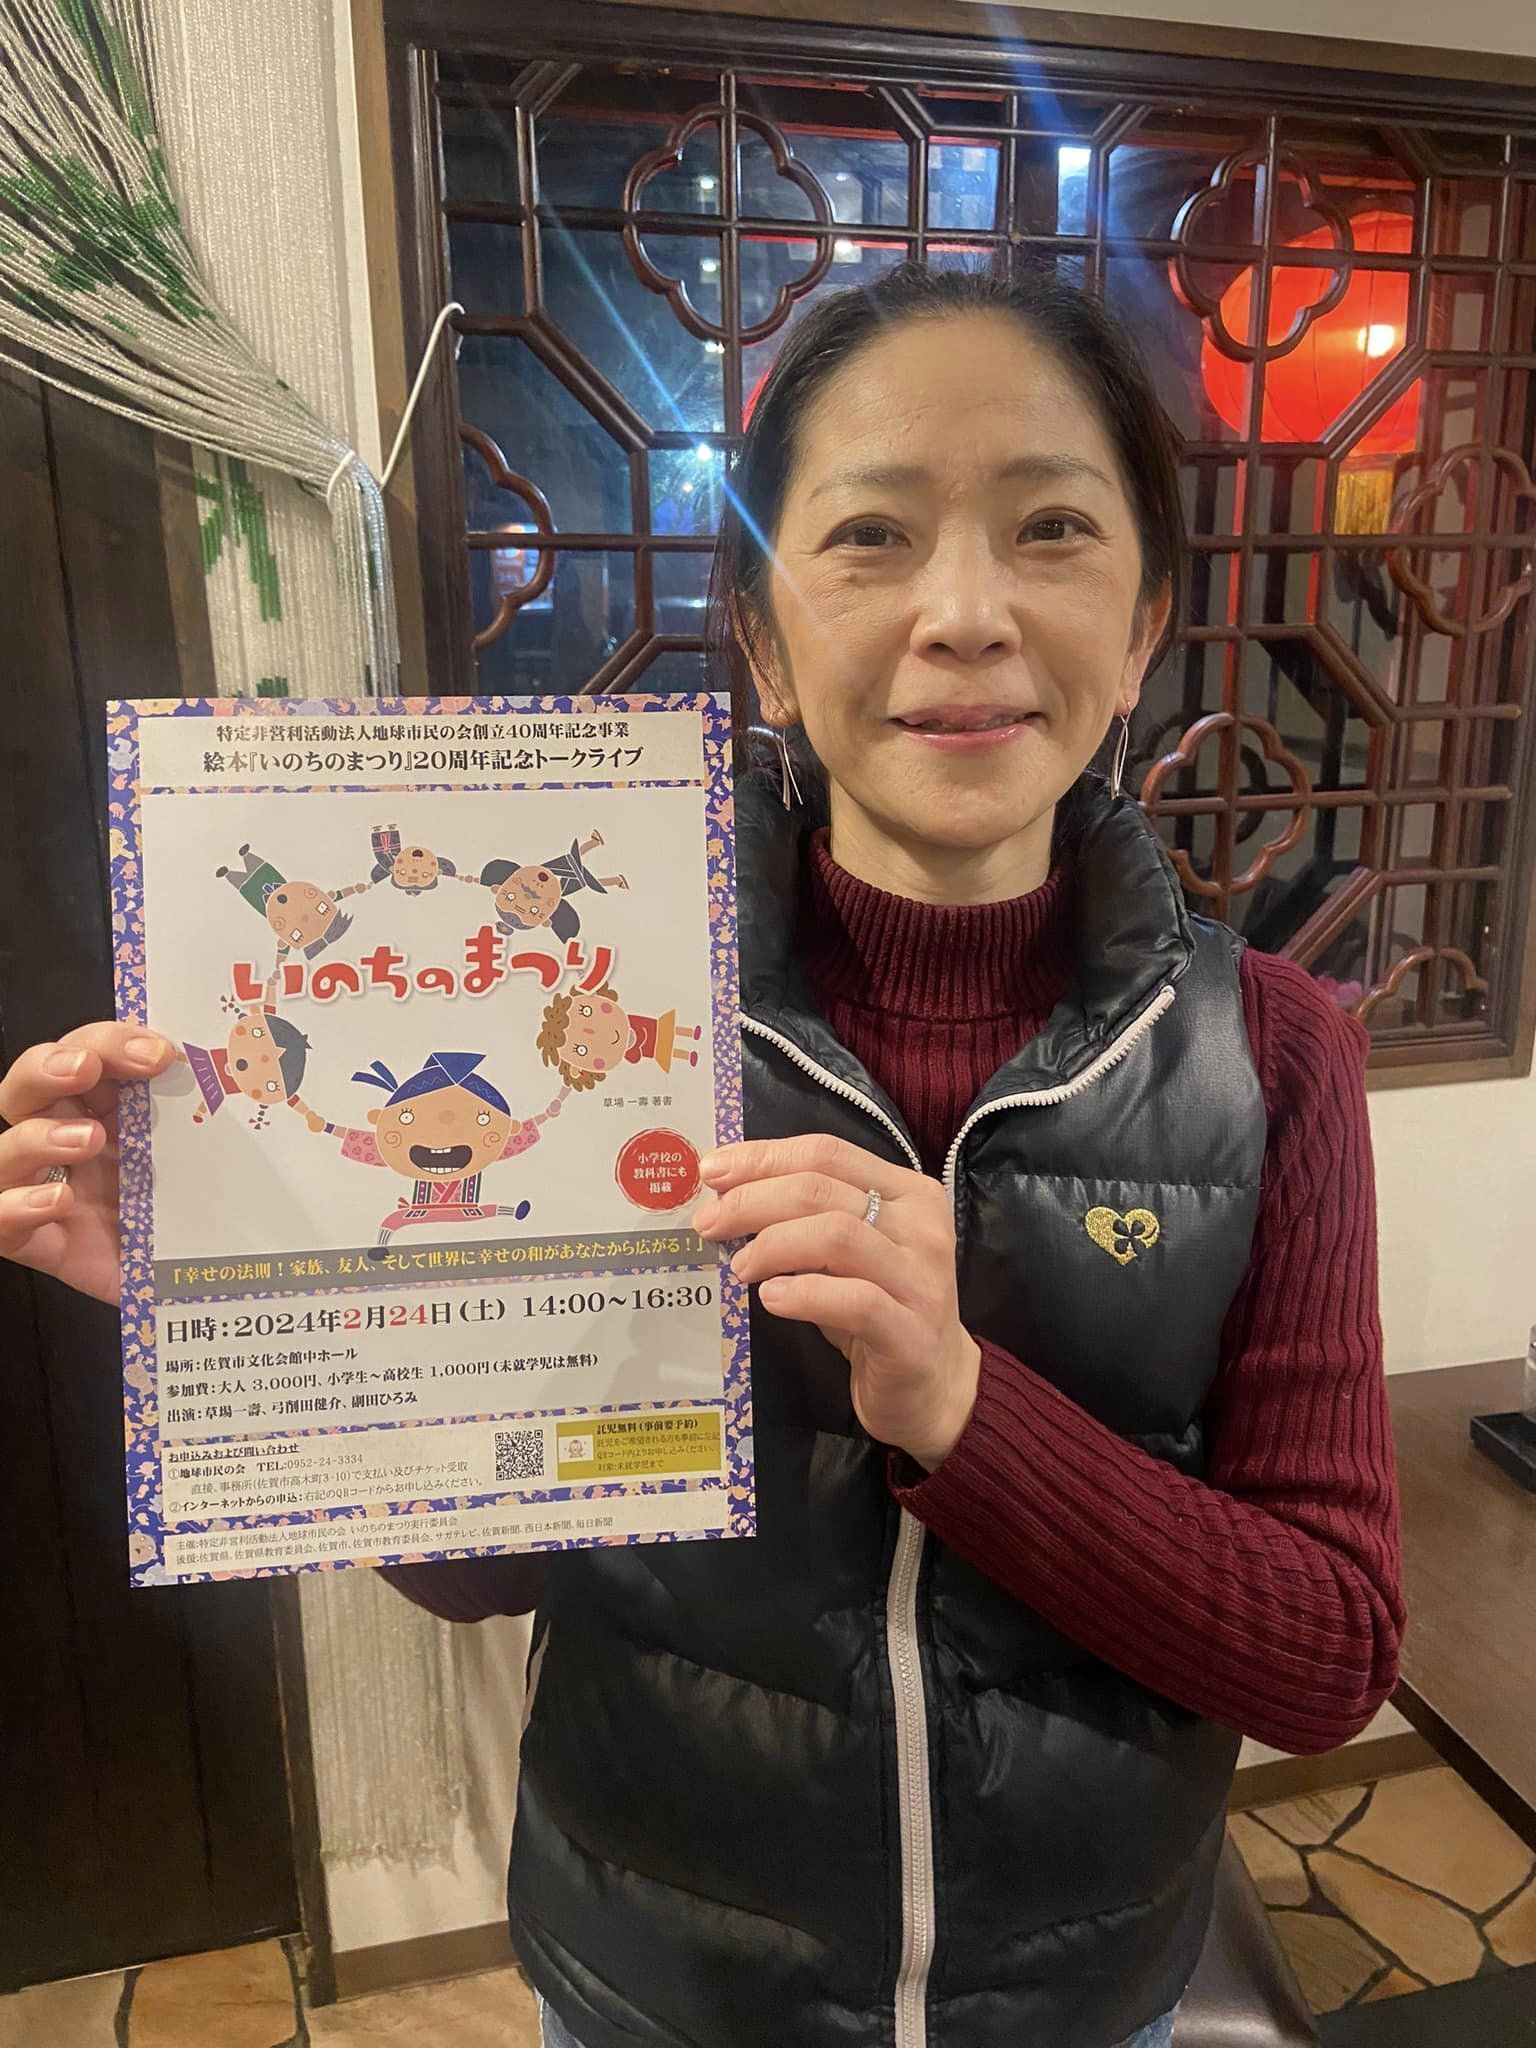 特定非営利活動法人地球市民の会創立40周年記念事業
絵本『いのちのまつり』20周年記念トークライブ
いのちのまつり
草場 一壽 著書
小学校の
教科書にも
掲載
『幸せの法則！家族、友人、そして世界に幸せの和があなたから広がる！』
日時：2024年2月24日（土） 14:00～16:30
場所：佐賀市文化会館中ホール
参加費：大人 3,000円、小学生～高校生 1,000円（未就学児は無料）
出演：草場一壽、弓削田健介、副田ひろみ
お申込みおよび問い合わせ
①地球市民の会 TEL:0952-24-3334
直接、事務所（佐賀市高木町3-10）で支払い及びチケット受取
②インターネットからの申込：右記のQRコードからお申し込みください。
託児無料（事前要予約）
託児をご希望される方も事前に左記
QRコード内よりお申し込みください。
対象:未就学児まで
主催:特定非営利活動法人地球市民の会 いのちのまつり実行委員会
後援:佐賀県、佐賀県教育委員会、佐賀市、佐賀市教育委員会、サガテレビ、佐賀新聞、西日本新聞、毎日新聞